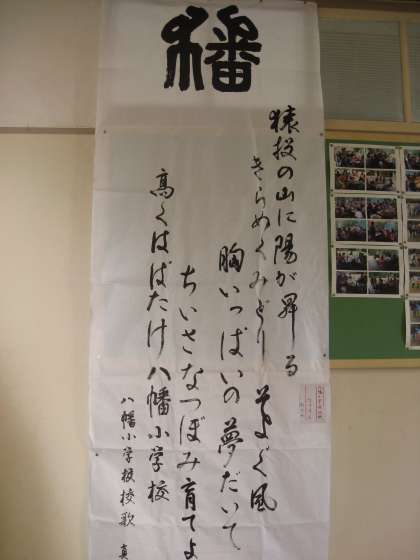 幡
猿投の山に陽が昇る
きらめくみどり そよぐ風
胸いっぱいの夢だいて
ちいさなつぼみ育てよ
高くはばたけ八幡小学校
八幡小学校校歌 真